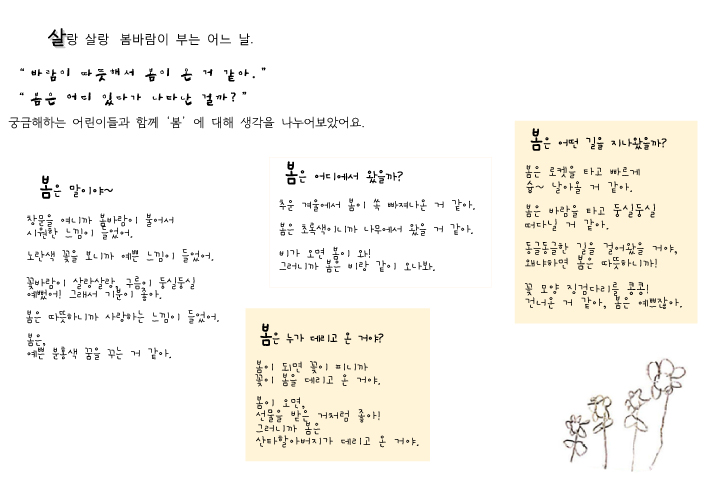 살랑 살랑 봄바람이 부는 어느 날.
“ 바람이 따뜻해서 봄이 온 거 같아. ”
“ 봄은 어디 있다가 나타난 걸까? ”
궁금해하는 어린이들과 함께 ‘봄’ 에 대해 생각을 나누어보았어요.
봄은 말이야~
창문을 여니까 봄바람이 불어서
시원한 느낌이 들었어.
노란색 꽃을 보니까 예쁜 느낌이 들었어.
꽃바람이 살랑살랑, 구름이 둥실둥실
예뻤어! 그래서 기분이 좋아.
봄은 따뜻하니까 사랑하는 느낌이 들었어.
봄은,
예쁜 분홍색 꿈을 꾸는 거 같아.
봄은 어디에서 왔을까?
추운 겨울에서 봄이 쏙 빠져나온 거 같아.
봄은 초록색이니까 나무에서 왔을 거 같아.
비가 오면 봄이 와!
그러니까 봄은 비랑 같이 오나봐.
봄은 누가 데리고 온 거야?
봄이 되면 꽃이 피니까
꽃이 봄을 데리고 온 거야.
봄이 오면,
선물을 받은 거처럼 좋아!
그러니까 봄은
산타할아버지가 데리고 온 거야.
봄은 어떤 길을 지나왔을까?
봄은 로켓을 타고 빠르게
슝~ 날아올 거 같아.
봄은 바람을 타고 둥실둥실
떠다닐 거 같아.
동글동글한 길을 걸어왔을 거야,
왜냐하면 봄은 따뜻하니까!
꽃 모양 징검다리를 콩콩!
건너온 거 같아, 봄은 예쁘잖아.